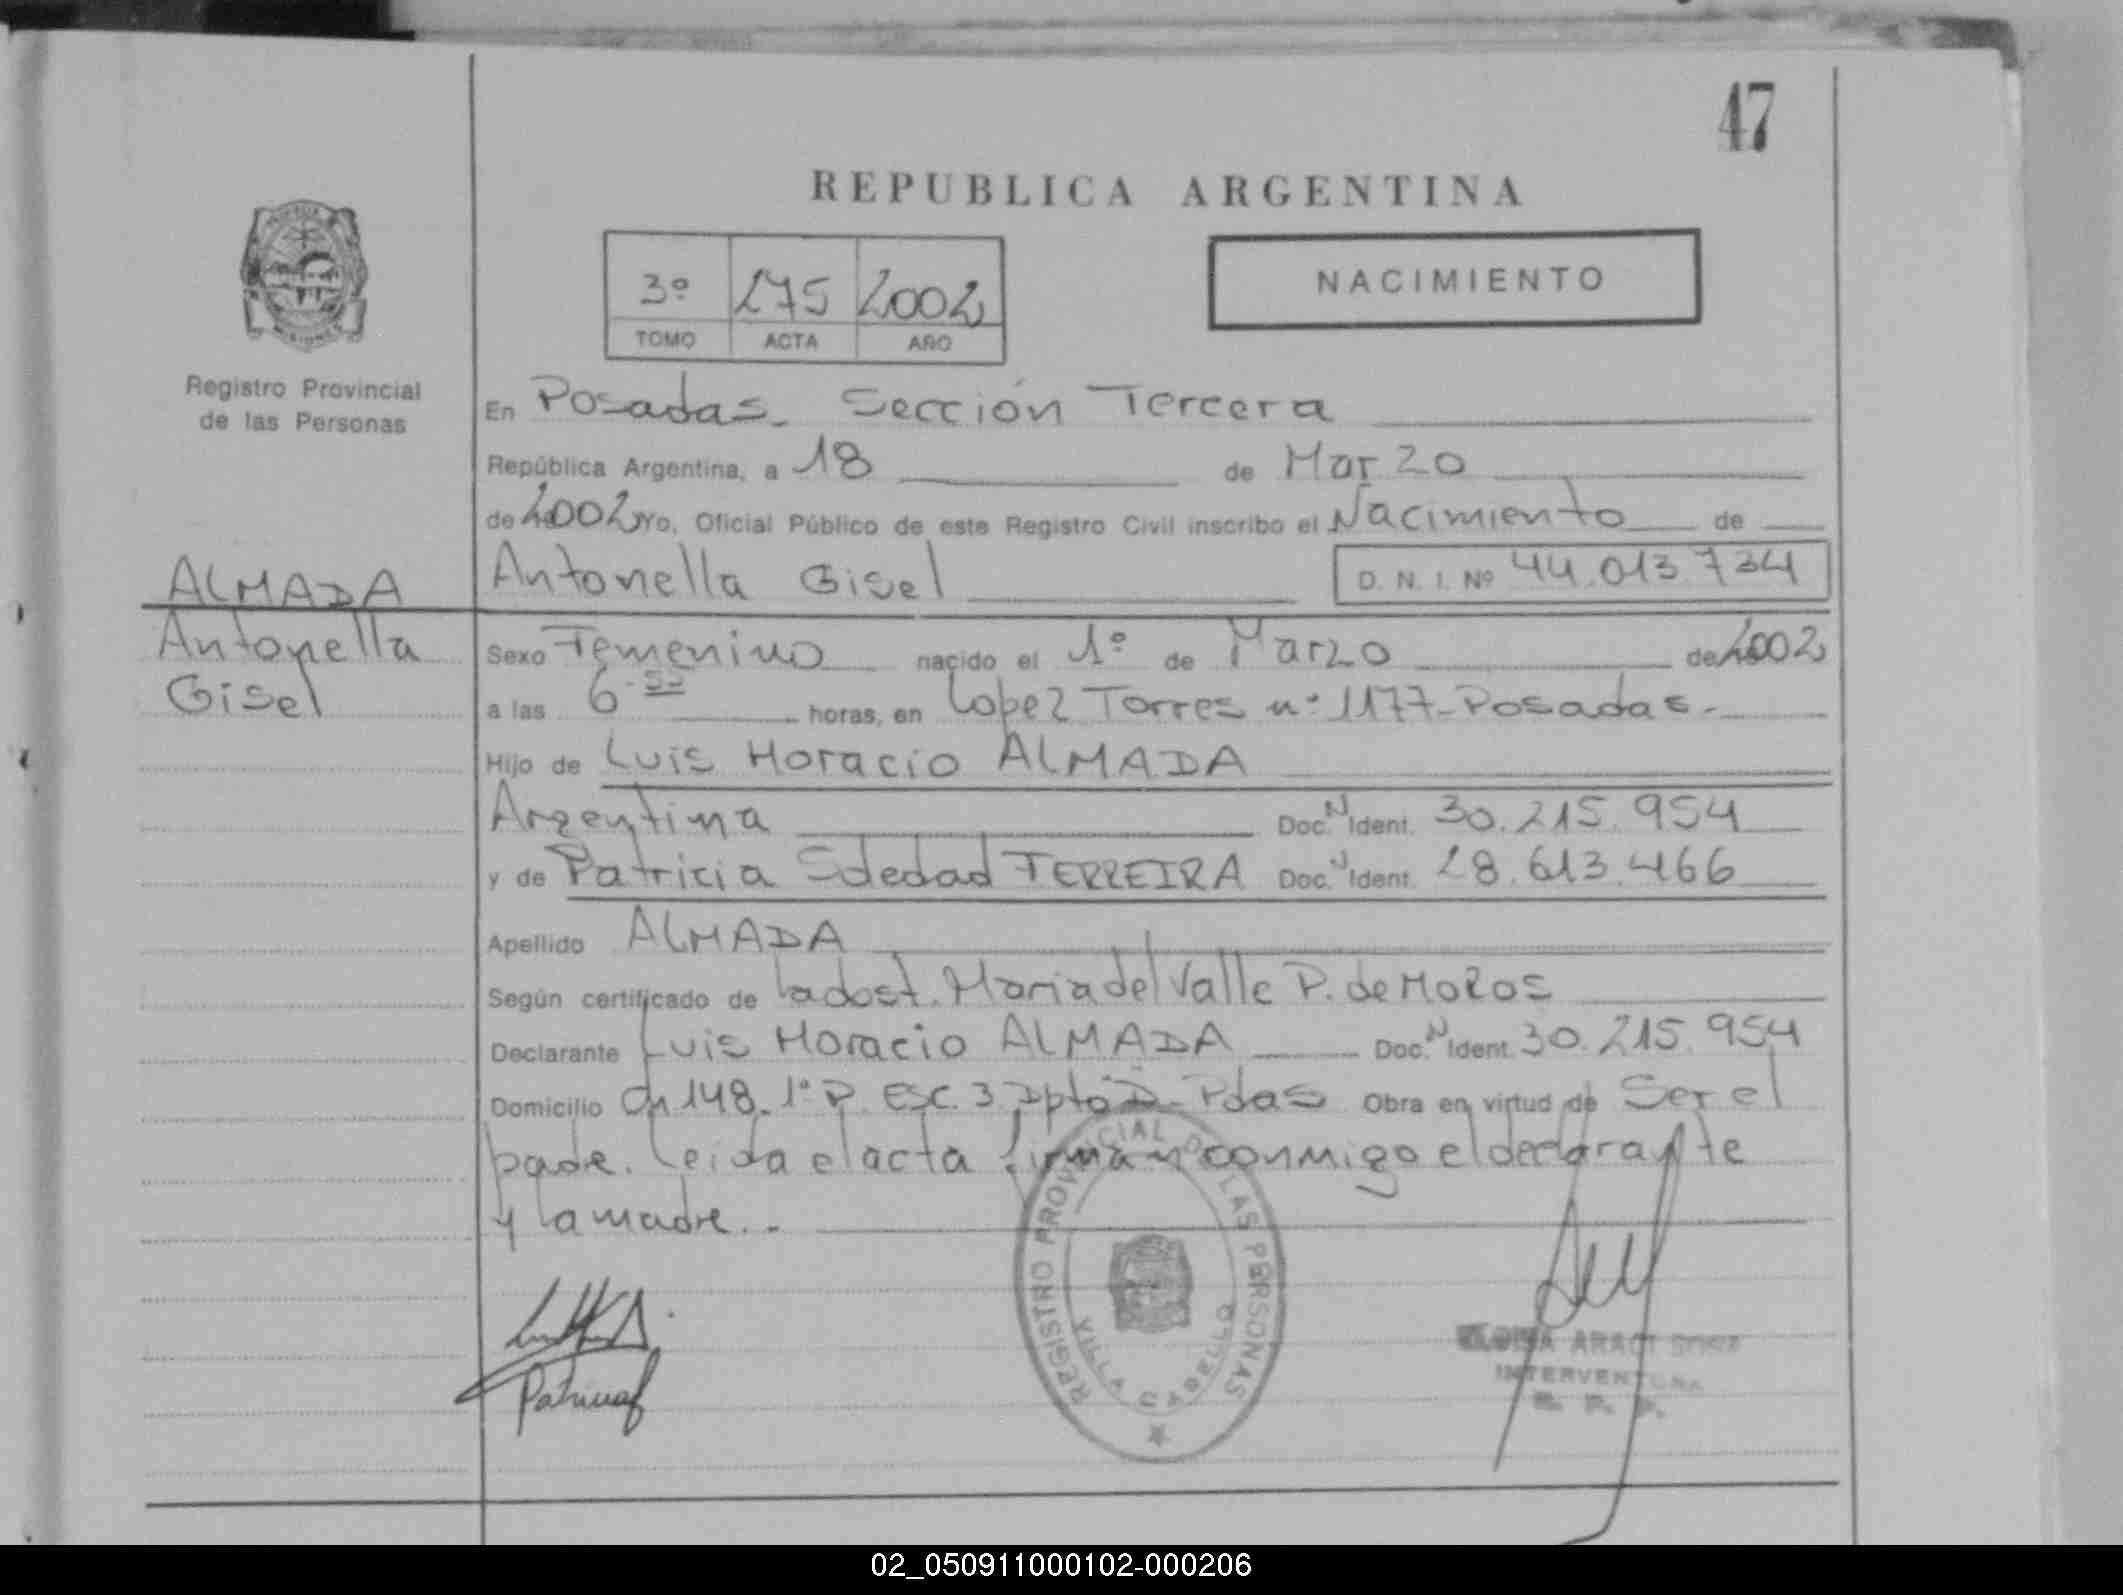 47
REPUBLICA ARGENTINA
3º 275 2002
TOMO ACTA AÑO
NACIMIENTO
Registro Provincial
de las Personas
En Posadas. Sección Tercera
República Argentina, a 18 de Marzo
de 2002 Yo, Oficial Público de este Registro Civil inscribo el Nacimiento de
ALMADA
Antonella Gisel D. N. I. Nº 44.013.734
Antonella
Gisel
Sexo Femenino nacido el 1º de Marzo de 2002
a las 6-55 horas, en Lopez Torres nº 1177-Posadas.-
Hijo de Luis Horacio ALMADA
Argentina Doc. N Ident. 30.215.954
y de Patricia Soledad FERREIRA Doc. N Ident. 28.613.466
Apellido ALMADA
Según certificado de la dost. Maria del Valle P. de
Declarante Luis Horacio ALMADA Doc. N Ident. 30.215.954
Domicilio Ch 148. 1º P. Esc. 3 Dpto D- Pdas Obra en virtud de Ser el
padre. Leida el acta firman conmigo el declarante
y la madre..-
REGISTRO PROVINCIAL DE LAS PERSONAS
VILLA CABELLO
INTERVENTORA
R. P. P.
02_050911000102-000206